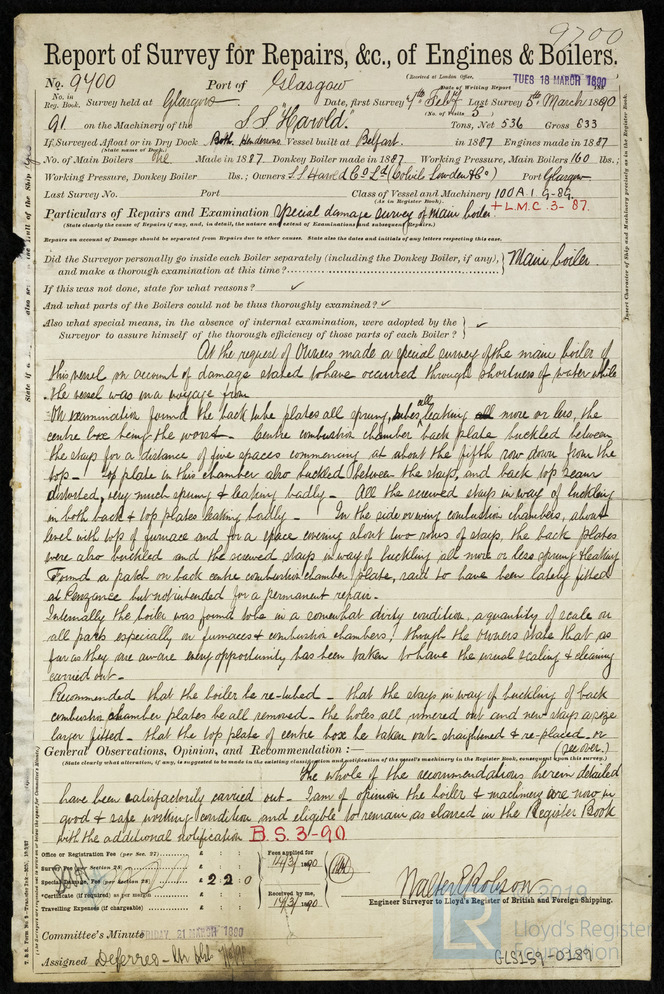 9700
Report of Survey for Repairs, &c., of Engines & Boilers.
(Received at London Office, TUES 18 MARCH 1890
No. 9400 Port of Glasgow Date of Writing Report
No. in Reg. Book. Survey held at Glasgow Date, first Survey 4th Feby Last Survey 5th March 1890
(No. of Visits 5)
91 on the Machinery of the S.S. "Harold". Tons, Net 536 Gross 833
If Surveyed Afloat or in Dry Dock Both. Hendersons Vessel built at Belfast. in 1887 Engines made in 1887
(State name of Dock.)
No. of Main Boilers One Made in 1887 Donkey Boiler made in 1887 Working Pressure, Main Boilers 160 lbs.;
Working Pressure, Donkey Boiler lbs.; Owners S.S. Harold Co Ld (Colvil Lowden & Co) Port Glasgow
Last Survey No. Port Class of Vessel and Machinery 100A.1. 9-89.
(As in Register Book). + L.M.C. 3-87.
Particulars of Repairs and Examination Special damage survey of main boiler
(State clearly the cause of Repairs if any, and, in detail, the nature and extent of Examinations and subsequent Repairs.)
Repairs on account of Damage should be separated from Repairs due to other causes. State also the dates and initials of any letters respecting this case.
Did the Surveyor personally go inside each Boiler separately (including the Donkey Boiler, if any), and make a thorough examination at this time? Main boiler
If this was not done, state for what reasons? ✓
And what parts of the Boilers could not be thus thoroughly examined? ✓
Also what special means, in the absence of internal examination, were adopted by the
Surveyor to assure himself of the thorough efficiency of those parts of each Boiler? ✓
At the request of Owners made a special survey of the main boiler of
this vessel on account of damage stated to have occurred through shortness of water while
the vessel was on a voyage from
On examination found the back tube plates all sprung, tubes all leaking more or less, the
centre box being the worst - Centre combustion chamber back plate buckled between
the stays for a distance of five spaces commencing at about the fifth row down from the
top - Top plate in this chamber also buckled between the stays, and back top seam
distorted, very much sprung & leaking badly - All the screwed stays in way of buckling
in both back & top plates leaking badly - In the side or wing combustion chambers, about
level with top of furnace and for a space covering about two rows of stays, the back plates
were also buckled and the screwed stays in way of buckling all more or less sprung & leaking
Found a patch on back centre combustion chamber plate, said to have been lately fitted
at Penzance but not intended for a permanent repair.
Internally the boiler was found to be in a somewhat dirty condition, a quantity of scale on
all parts especially on furnaces & combustion chambers, though the owners state that as
far as they are aware every opportunity has been taken to have the usual scaling & cleaning
carried out -
Recommended that the boiler be re-tubed - that the stays in way of buckling of back
combustion chamber plates be all removed - the holes all rimered out and new stays a size
larger fitted - that the top plate of centre box be taken out - straightened & re-placed or
General Observations, Opinion, and Recommendation :— (see over.)
(State clearly what alteration, if any, is suggested to be made in the existing classification and notification of the vessel's machinery in the Register Book, consequent upon this survey.)
The whole of the recommendations herein detailed
have been satisfactorily carried out - I am of opinion the boiler & machinery are now in
good & safe working condition and eligible to remain as classed in the Register Book
with the additional notification B.S. 3-90
Office or Registration Fee (per Sec. 27) £ : :
Survey Fee (per Section 28) £ : :
Special Damage Fee (per Section 28) £ 2 : 2 : 0
*Certificate (if required) as per margin £ : :
Travelling Expenses (if chargeable) £ : :
Fees applied for 14/3/1890
Received by me, 14/3/1890
Walter E Robson
Engineer Surveyor to Lloyd's Register of British and Foreign Shipping.
Committee's Minute FRIDAY 21 MARCH 1890
Assigned Deferred -
2019
LR
Lloyd's Register
Foundation
GLS159-0189
Insert Character of Ship and Machinery precisely as in the Register Book.